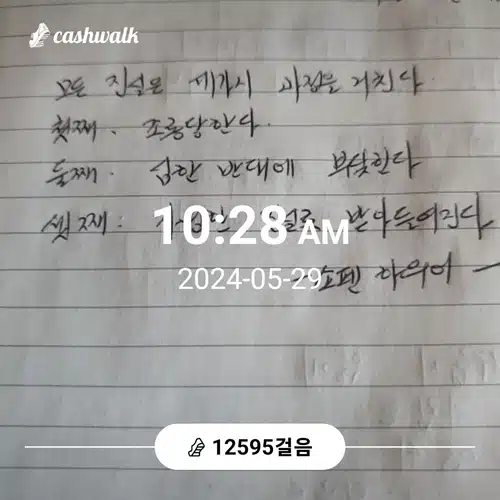 cashwalk
모든 진실은 세가지 과정을 거친다.
첫째. 조롱당한다.
둘째. 심한 반대에 부딪힌다
셋째: 받아들여진다
10:28 AM
2024-05-29
쇼펜하우어
12595걸음